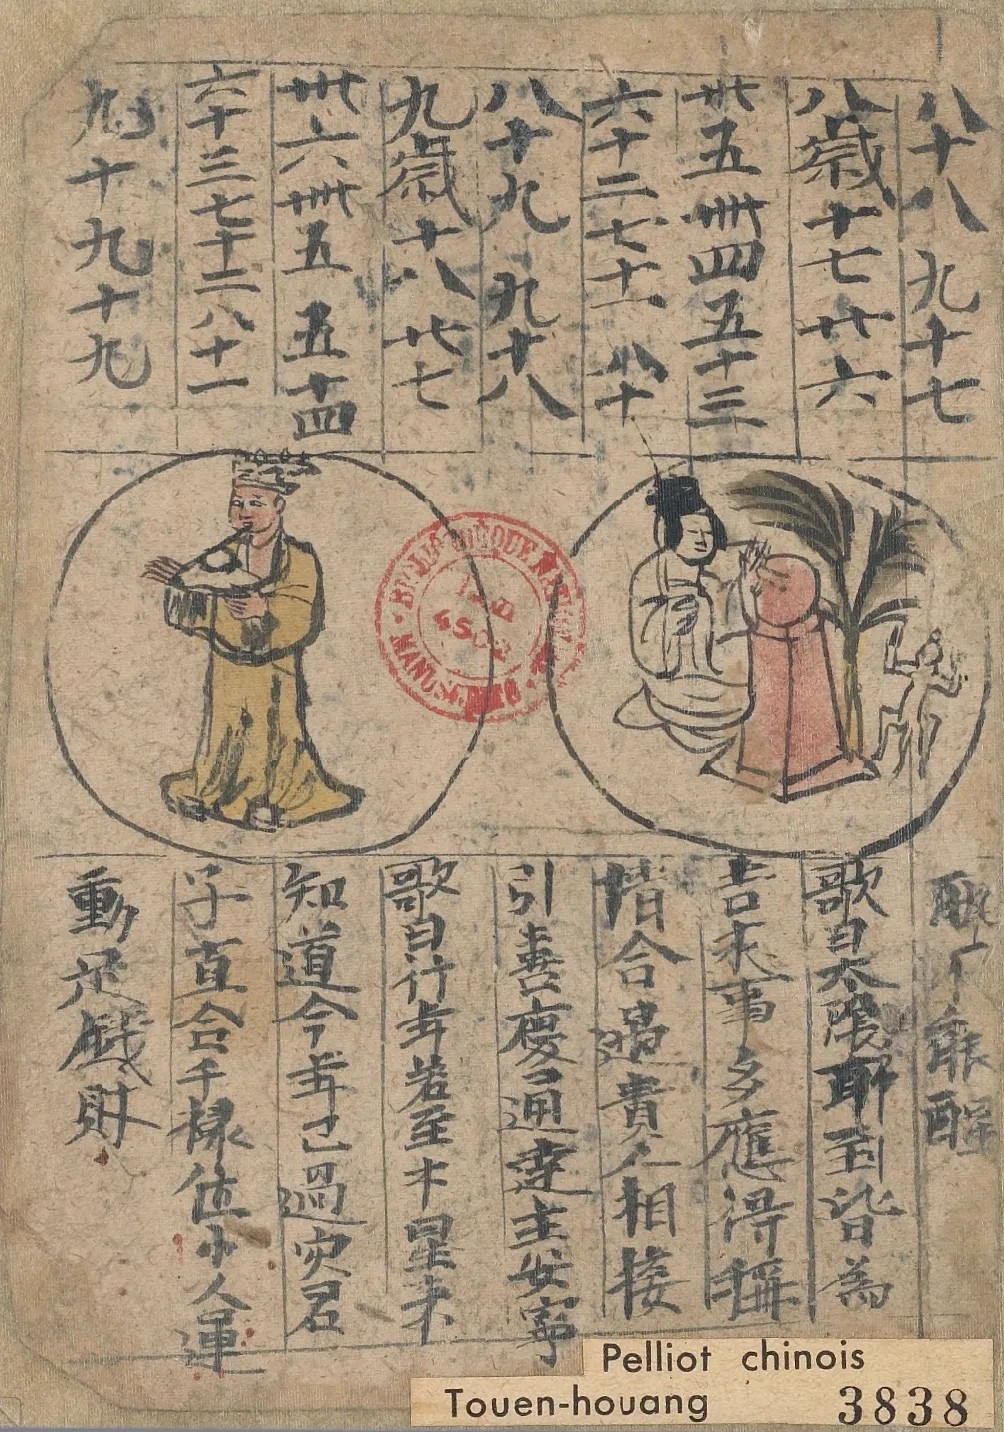 八十八 九十七
八歲 十七 廿六
卅五 卌四 五十三
六十二 七十一 八十
八十九 九十八
九歲 十八 廿七
卅六 卌五 五十四
六十三 七十二 八十一
九十 九十九
能醒
歌曰太陰耶到皆為
吉来事多應得稱
情合遇貴人相接
引喜慶通達主安寧
歌曰行年若至木星来
知道今年已過灾君
子直合千祿位小人運
動足錢財
BIBLIOTHÈQUE NATIONALE
MANUSCRITS
Pelliot chinois
Touen-houang 3838